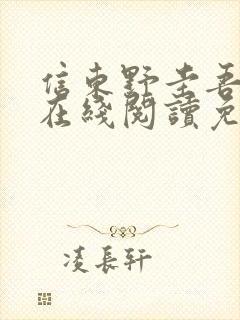 信東野圭吾
在綫閱讀免
凌長軒